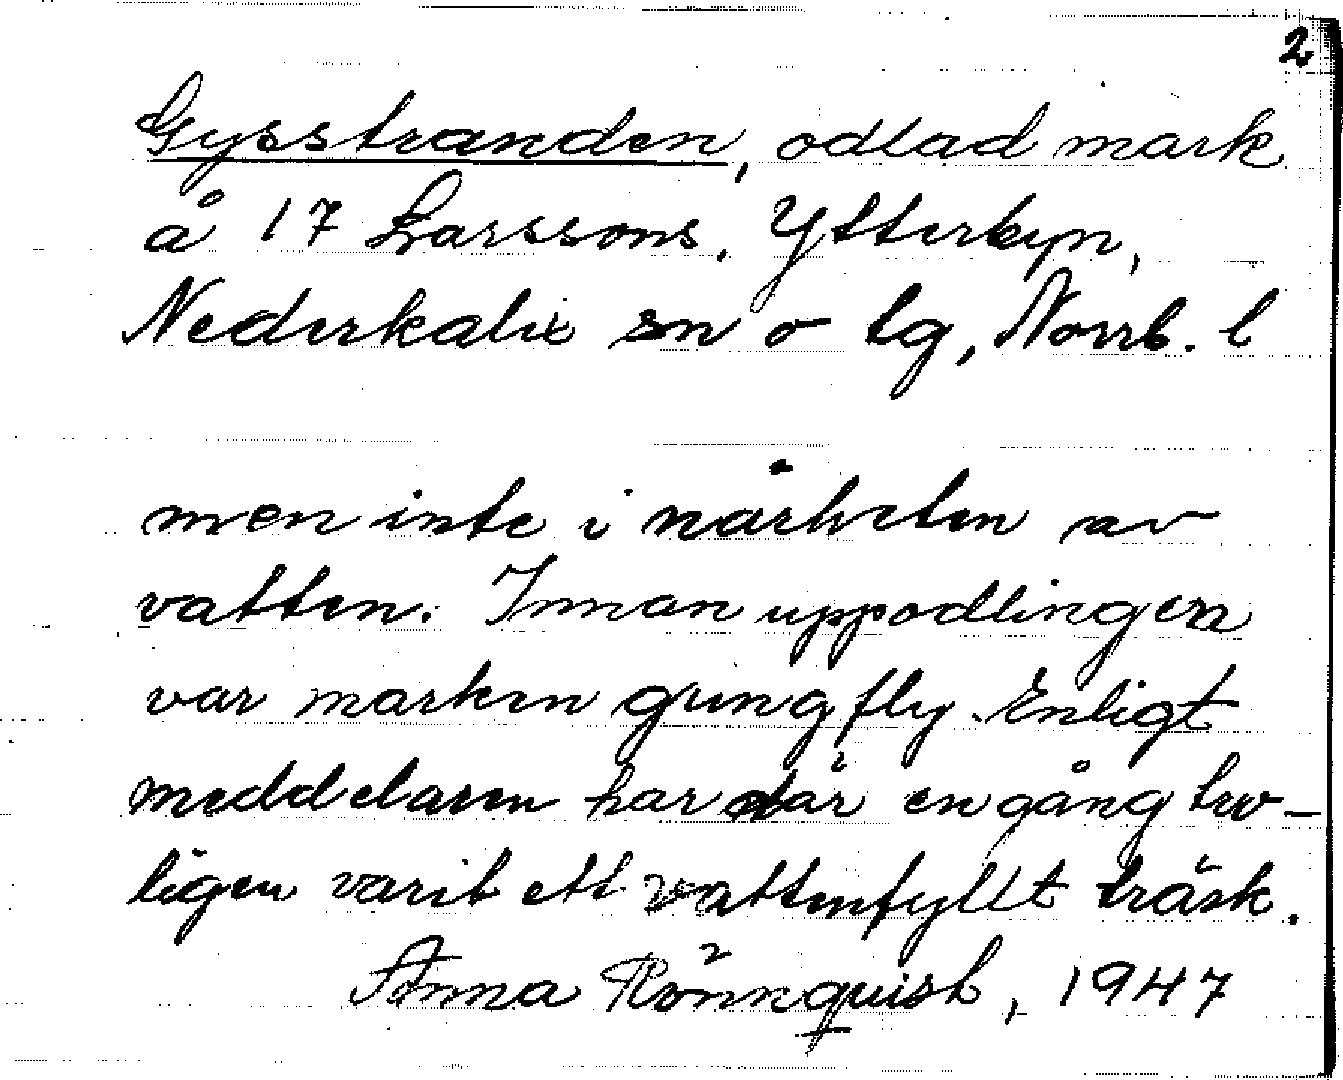 2
Gysstranden, odlad mark
å 17 Larssons, Ytterbyn,
Nederkalix sn o tg, Norrb. l
men inte i närheten av
vatten. Innan uppodlingen
var marken gungfly. Enligt
meddelaren har där en gång tro-
ligen varit ett vattenfyllt träsk.
Anna Rönnquist, 1947